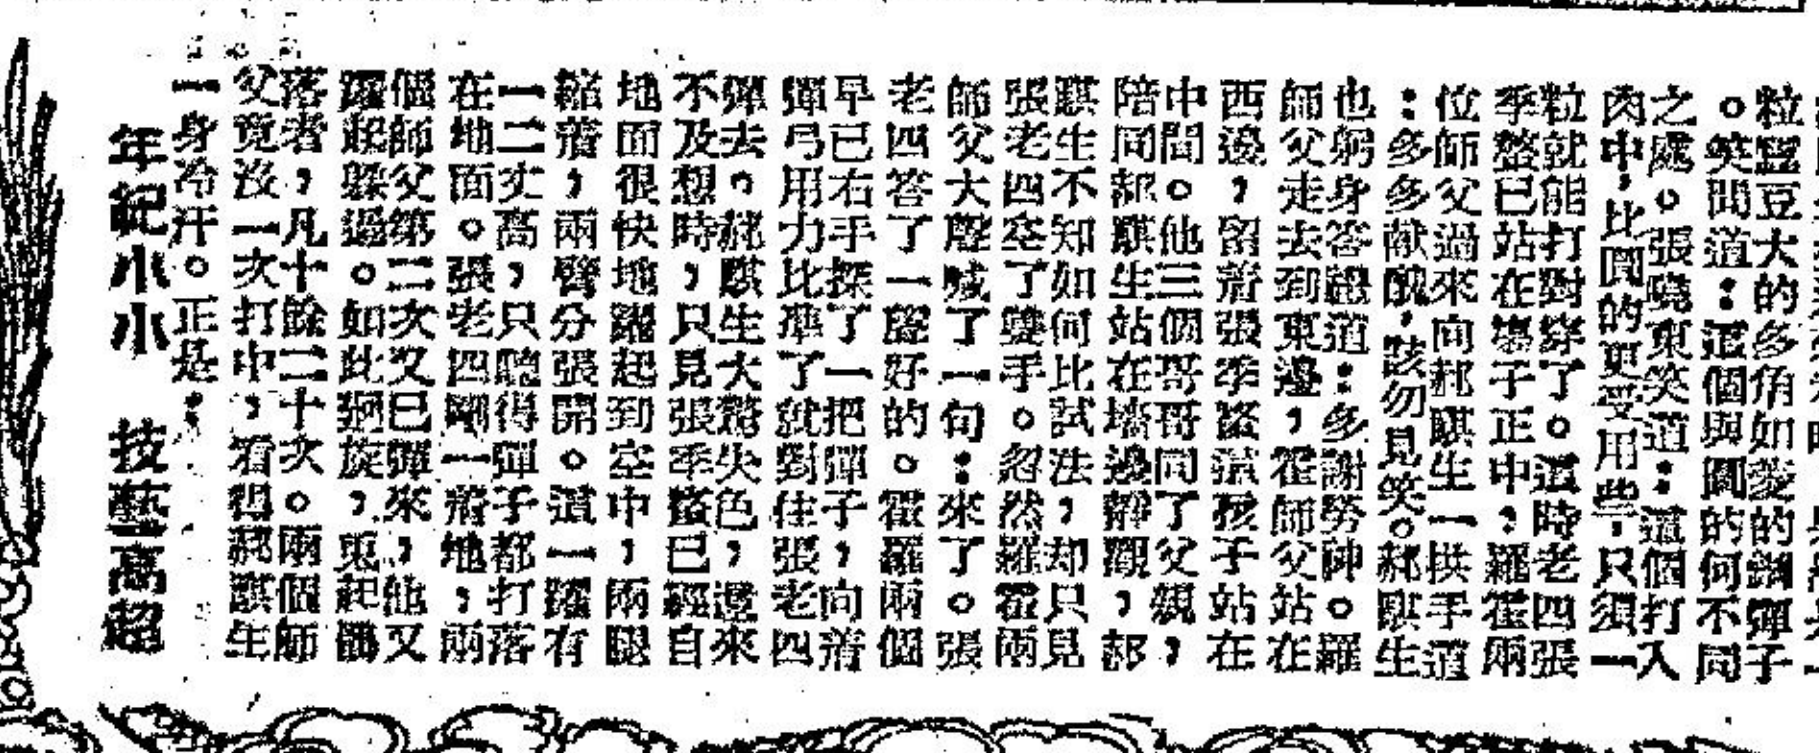 粒蠶豆大的多角如菱的鋼彈子
。笑問道：這個與圓的何不同
之處。張曉東笑道：這個打入
肉中，比圓的更受用些，只須一
粒就能打對穿了。這時老四張
季螯已站在場子正中，羅霍兩
位師父過來向郝騏生一拱手道
：多多献醜，該勿見笑。郝騏生
也躬身答禮道：多謝勞神。羅
師父走去到東邊，霍師父站在
西邊，留着張季螯這孩子站在
中間。他三個哥哥同了父親，
陪同郝騏生站在墻邊靜觀，郝
騏生不知如何比試法，却只見
張老四空了雙手。忽然羅霍兩
師父大聲喊了一句：來了。張
老四答了一聲好的。霍羅兩個
早已右手探了一把彈子，向着
彈弓用力比準了就對住張老四
彈去。郝騏生大驚失色，還來
不及想時，只見張季螯已經自
地面很快地躍起到空中，兩腿
縮着，兩臂分張開。這一躍有
一二丈高，只聽得彈子都打落
在地面。張老四剛一着地，兩
個師父第二次又已彈來，他又
躍起躲過。如此廻旋，兎起鶻
落者，凡十餘二十次。兩個師
父竟沒一次打中，看得郝騏生
一身冷汗。正是：
年紀小小　技藝高超